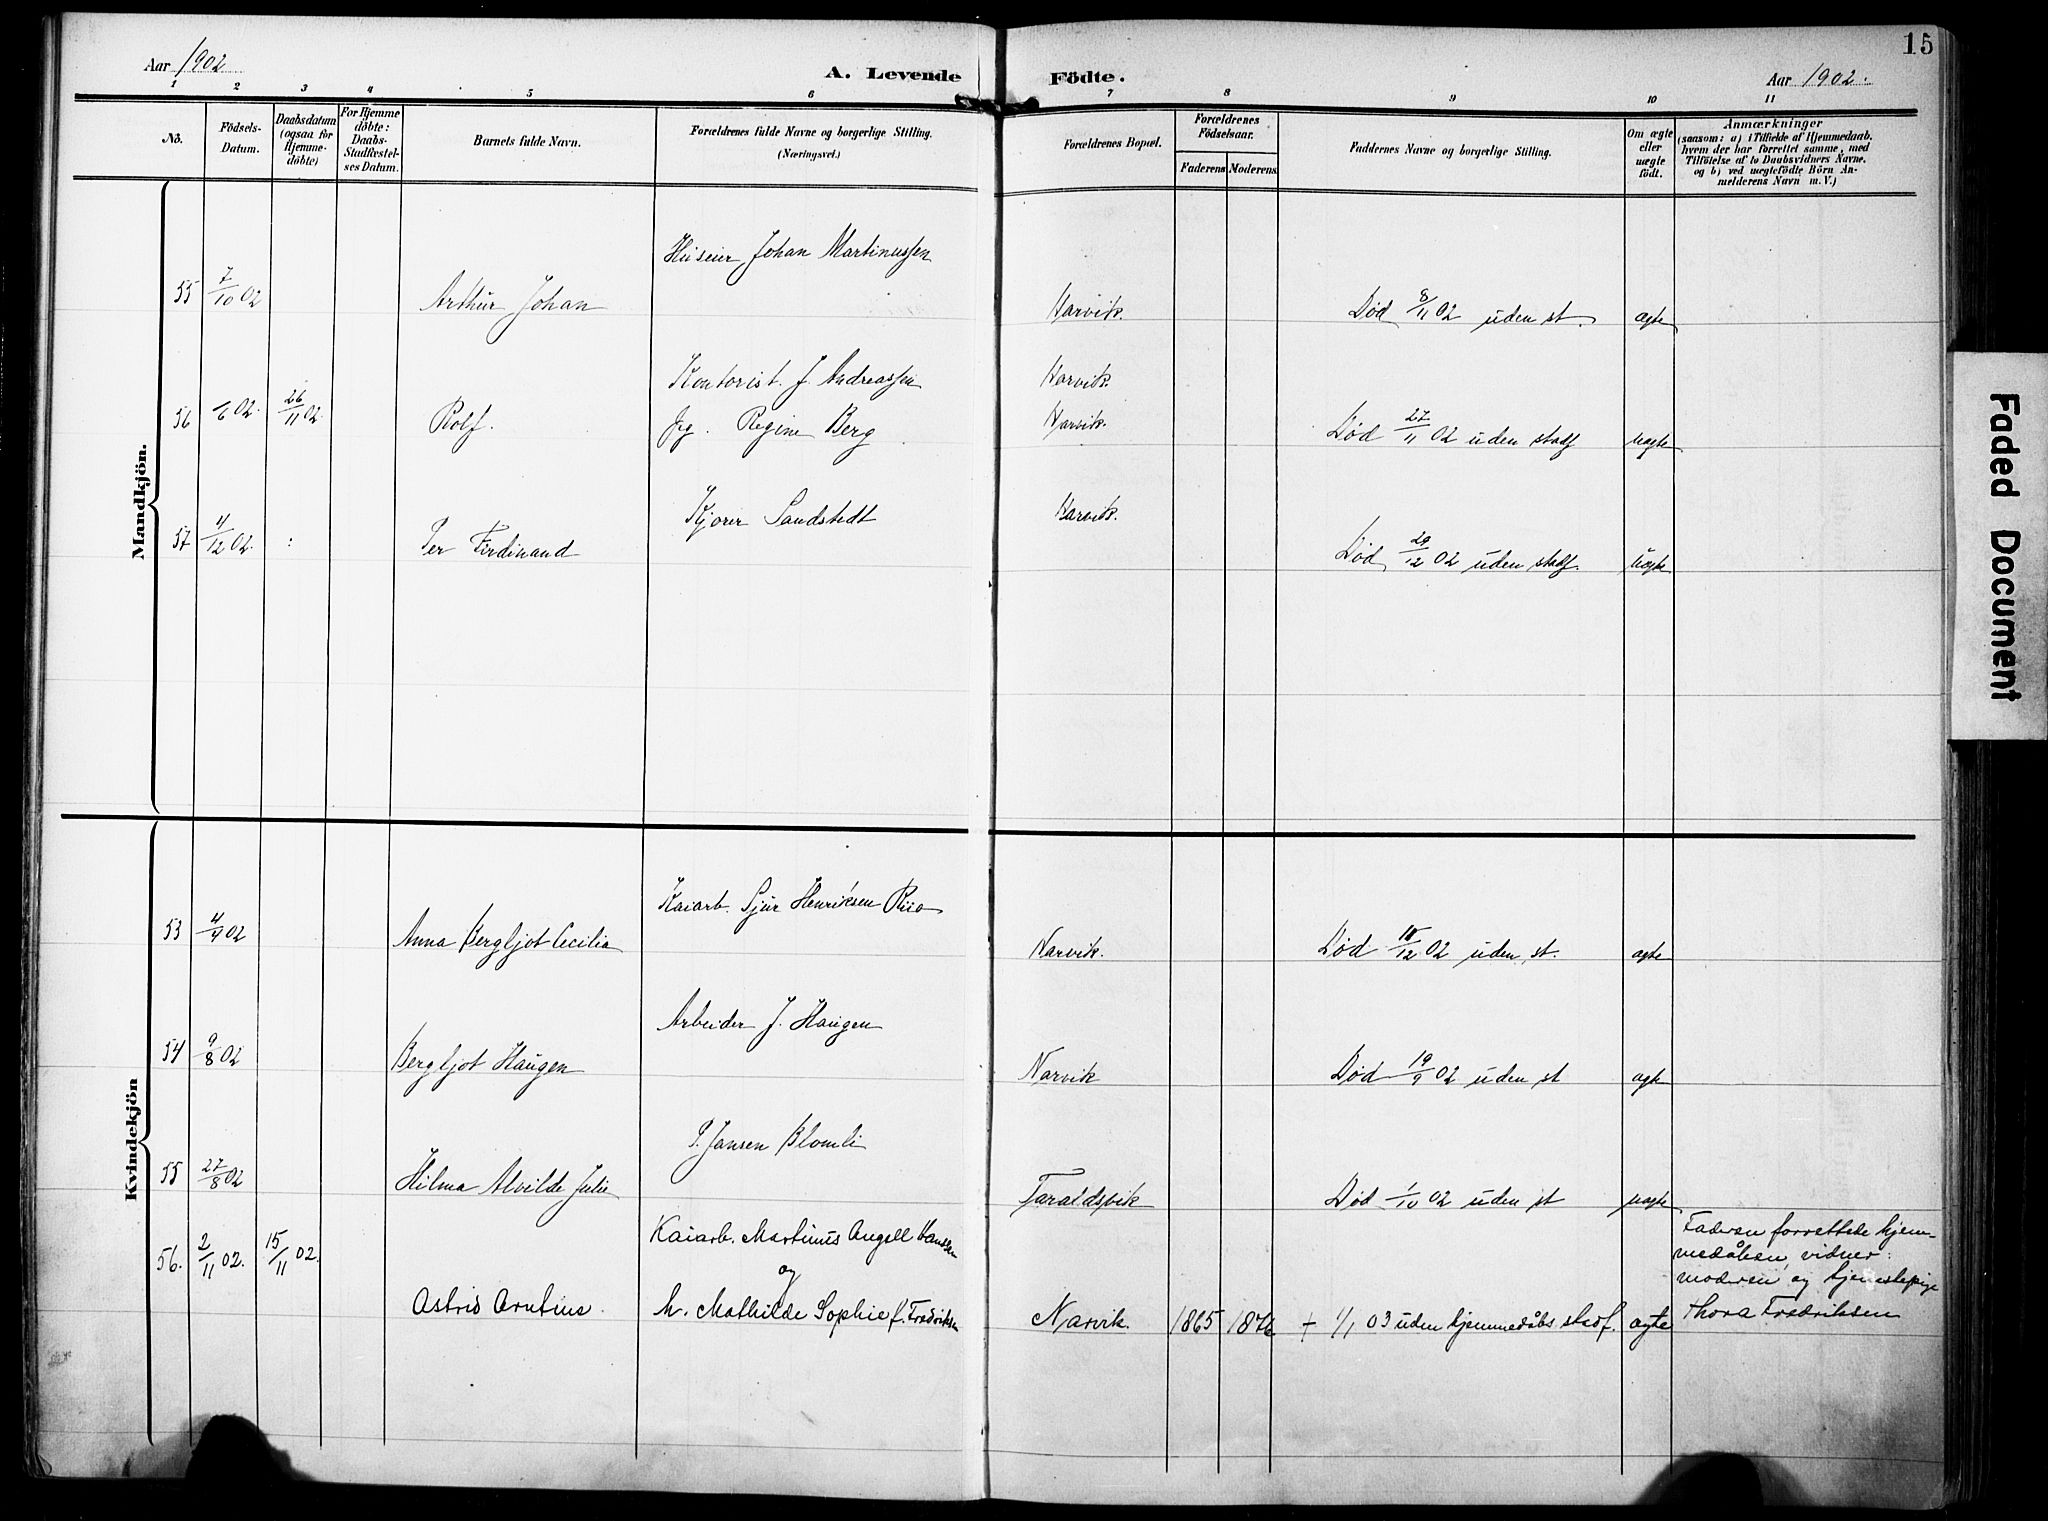 15
Aar 1902
A. Levende Födte.
Aar 1902.
1 2 3 4 5 6 7 8 9 10 11
No.
Födsels-
Datum.
Daabsdatum
(ogsaa for
Hjemme-
döbte)
For Hjemme
döbte:
Daabs-
Stadfæstel-
ses Datum.
Barnets fulde Navn.
Forældrenes fulde Navne og borgerlige Stilling.
(Næringsvei.)
Forældrenes Bopæl.
Forældrenes
Födselsaar.
Faderens Moderens
Faddernes Navne og borgerlige Stilling.
Om ægte
eller
uægte
födt.
Anmærkninger
(saasom: a) i Tilfælde af Hjemmedaab.
hvem der har forrettet samme, med
Tilföielse af to Daabsvidners Navne.
og b) ved uægtefödte Börn An-
melderens Navn m. V.)
Mandkjön.
Huseier Johan Martinussen
55 7/10 02 Arthur Johan Narvik. Død 8/11 02 uden st. ægte
Kontorist. J. Andreassen Narvik.
56 /6 02. 26/11 02 Rolf. Pg. Regine Berg Narvik. Død 27/11 02 uden stadf uægte
Sandstedt Narvik.
57 4/12 02. Per Ferdinand Død 29/12 02 uden stadf. uægte
Kvindekjön
Kaiarb. Sjur Henriksen Riio
53 4/9 02 Anna Bergljot Cecilia Narvik. Død 18/12 02 uden st. ægte
Arbeider J. Haugen
54 9/8 02 Bergljot Haugen Narvik Død 19/9 02 uden st ægte
P. Jansen Blomli
55 27/8 02 Hilma Alvilde Julie Taraldsvik Død 1/10 02 uden st uægte
56. 2/11 02. 15/11 02. Kaiarb. Martinus Angell Hanssen
og
Astrid Arntine. h. Mathilde Sophie f. Fredriksen Narvik. 1865 1876 + 1/1 03 uden hjemmedåbs stadf. ægte
Faderen forrettede hjem-
medåben, vidner:
moderen og tjenestepige
Thora Fredriksen
Faded Document